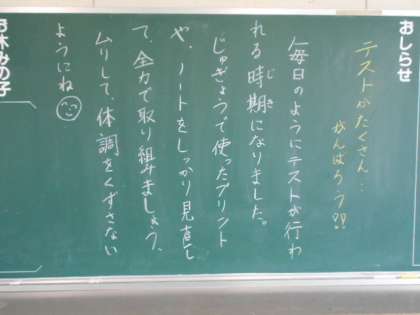 おしらせ
テストがたくさん…
がんばろう!!
毎日のようにテストが行わ
れる時期になりました。
じき
じゅぎょうで使ったプリント
や、ノートをしっかり見直し
て、全力で取り組みましょう。
ムリして、体調をくずさない
ようにね
お休みの子